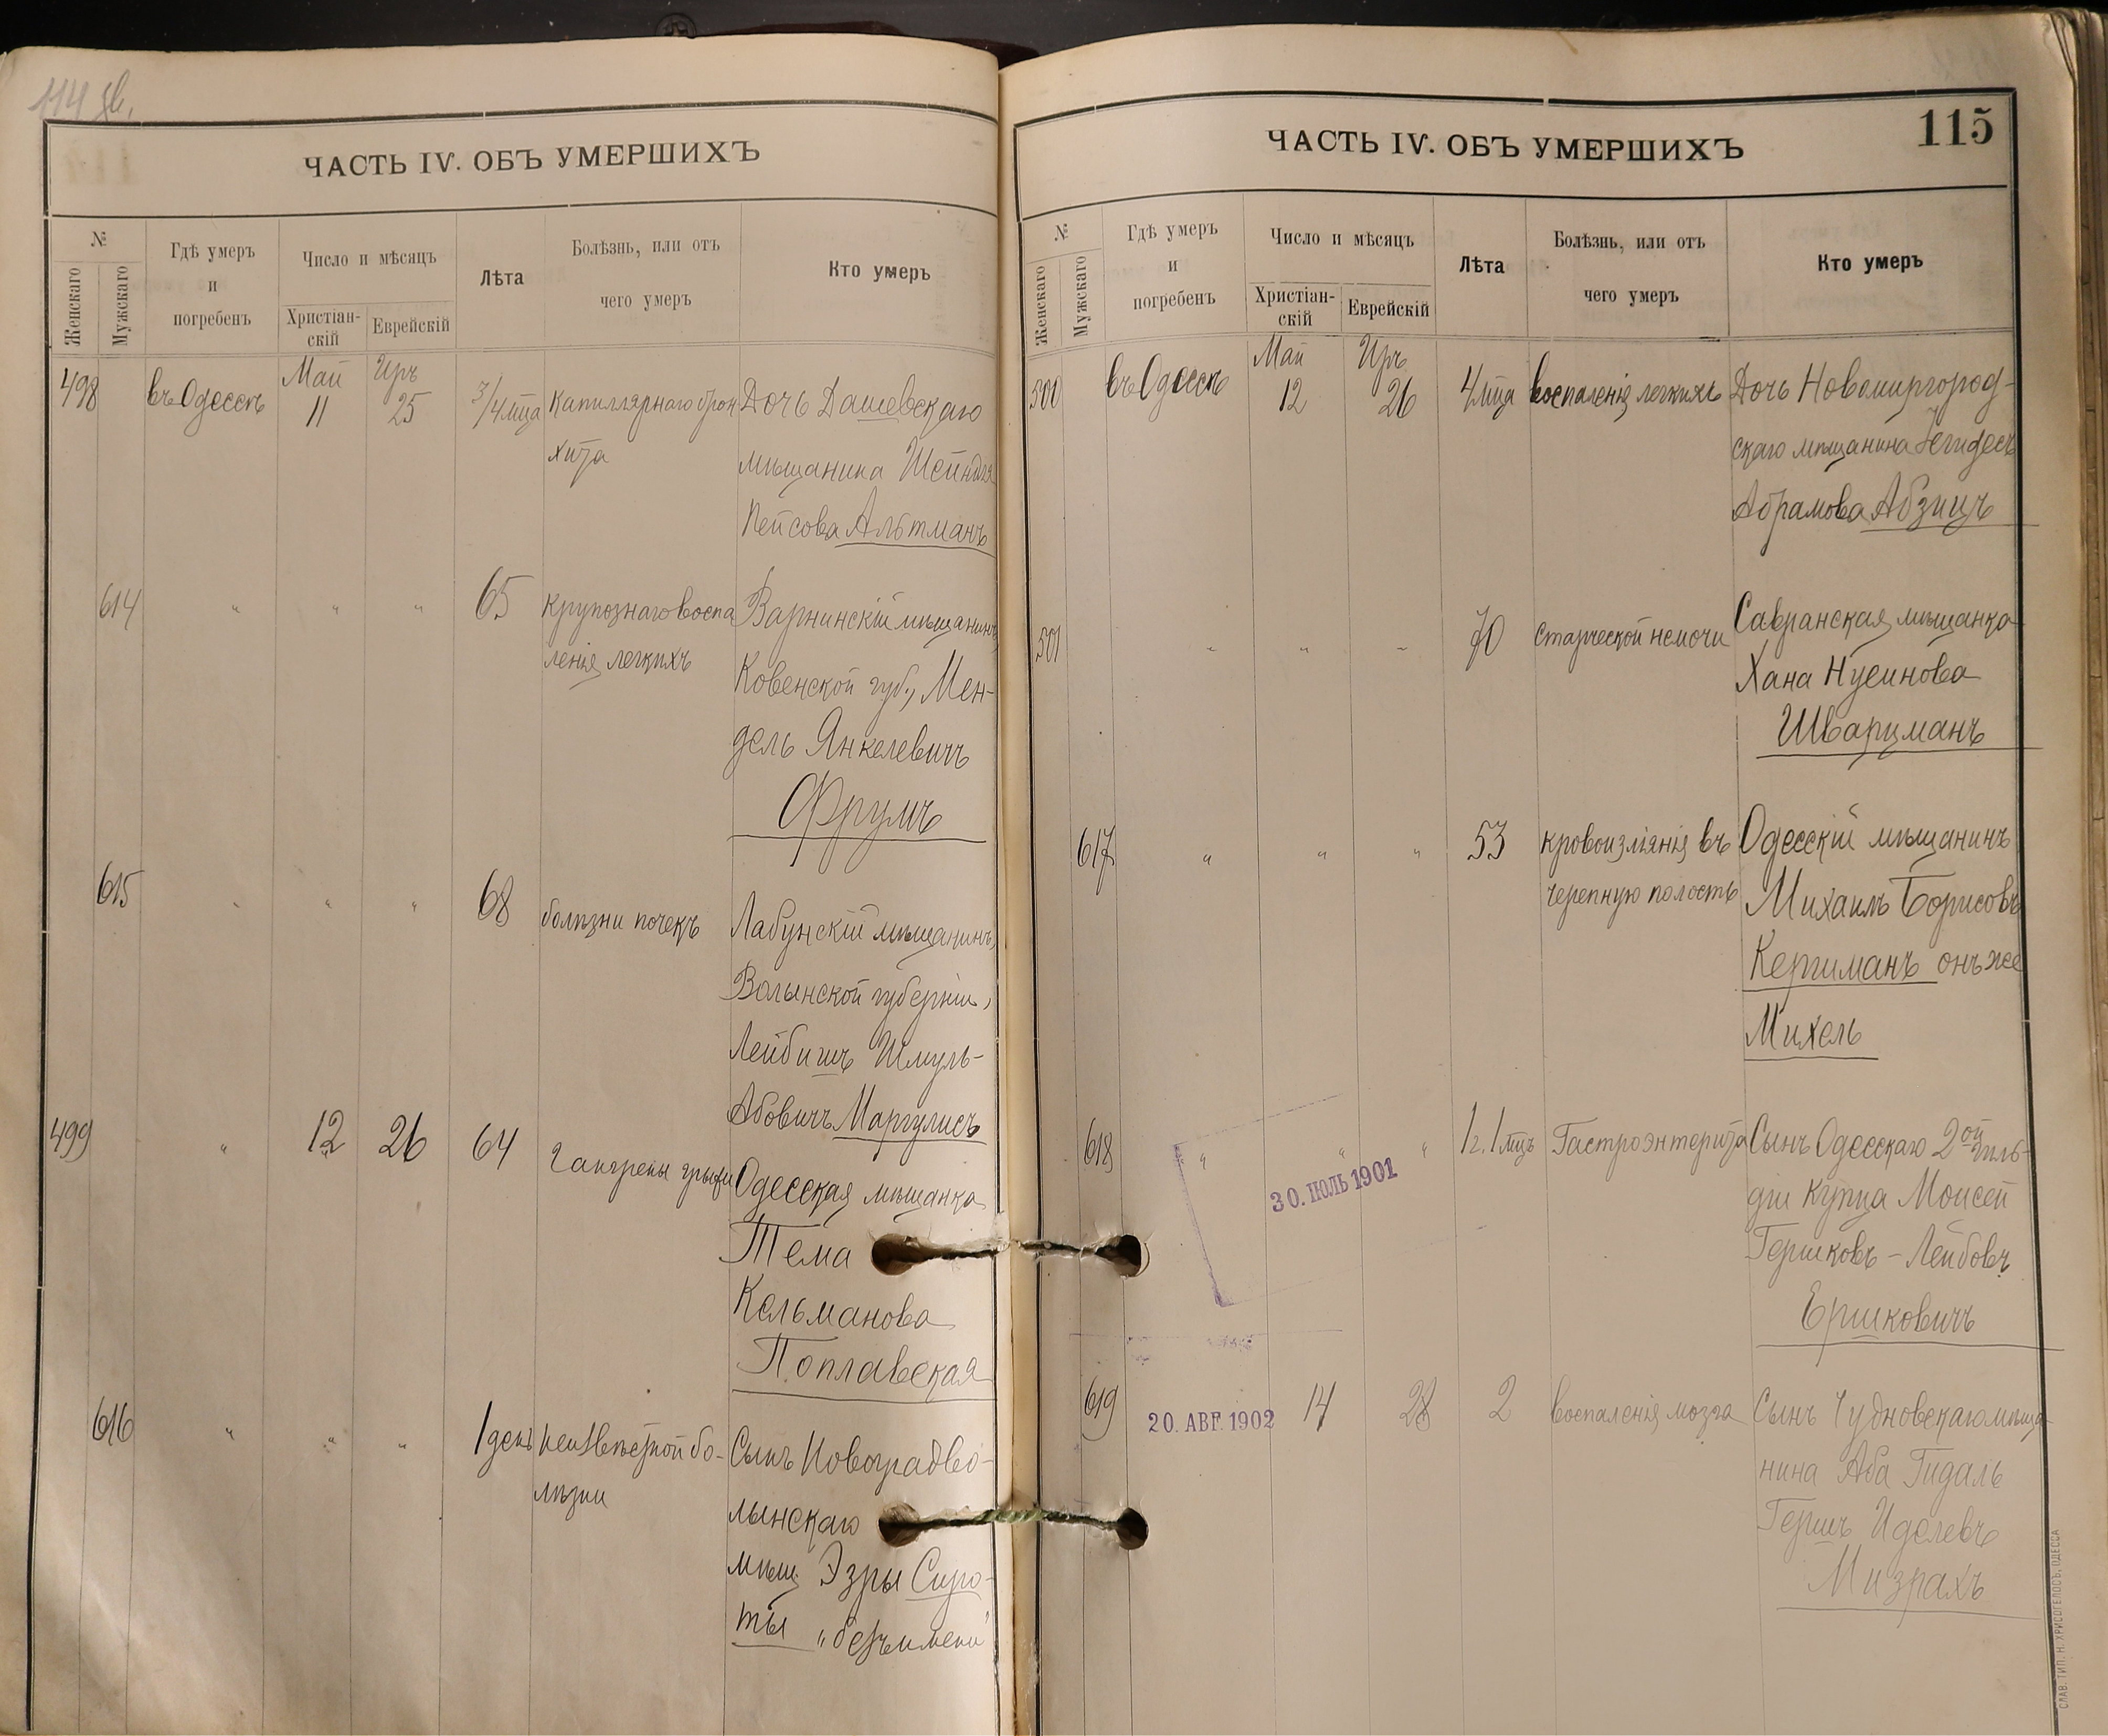 114 об.
ЧАСТЬ IV. ОБЪ УМЕРШИХЪ
№
Женскаго
Мужскаго
Гдѣ умеръ
и
погребенъ
Число и мѣсяцъ
Христіан-
скій
Еврейскій
Лѣта
Болѣзнь, или отъ
чего умеръ
Кто умеръ
498
въ Одессѣ
Май
11
Иръ
25
3/4 мца
Капиллярнаго брон
хита
Дочь Дашевскаго
мѣщанина Шейндля
Пейсова Альтманъ
614
" " "
65
крупознаго воспа
ленія легкихъ
Варнинскій мѣщанинъ,
Ковенской губ., Мен-
дель Янкелевичъ
Фрумъ
615
" " "
68
болѣзни почекъ
Лабунскій мѣщанинъ,
Волынской губерніи,
Лейбишъ Шмуль-
Абовичъ Маргулисъ
499
"
12
26
64
гангрены грыжи
Одесская мѣщанка
Тема
Кельманова
Поплавская
616
" " "
1 день
неизвѣстной бо-
лѣзни
Сынъ Новоградво-
лынскаго
мѣщ. Эзры Сиро-
ты "безъ имени"
115
ЧАСТЬ IV. ОБЪ УМЕРШИХЪ
№
Женскаго
Мужскаго
Гдѣ умеръ
и
погребенъ
Число и мѣсяцъ
Христіан-
скій
Еврейскій
Лѣта
Болѣзнь, или отъ
чего умеръ
Кто умеръ
500
въ Одессѣ
Май
12
Иръ
26
4 мца
воспаленія легкихъ
Дочь Новомиргород-
скаго мѣщанина
Абрамова Абзицъ
501
" " "
70
старческой немочи
Савранская мѣщанка
Хана Нусинова
Шварцманъ
617
" " "
53
кровоизліянія въ
черепную полость
Одесскій мѣщанинъ
Михаилъ Борисовъ
Кергиманъ онъ же
Михель
618
" " "
1 г. 1 мцъ
Гастроэнтерита
Сынъ Одесскаго 2ой гиль-
діи купца Моисей
Гершковъ-Лейбовъ
Ершковичъ
30. ІЮЛЬ 1901
619
20. АВГ. 1902
14
28
2
воспаленія мозга
Сынъ Чудновскаго мѣща-
нина Аба Гидаль
Гершъ Иделевъ
Мизрахъ
СЛАВ. ТИП. Н. ХРИСОГЕЛОСЪ, ОДЕССА